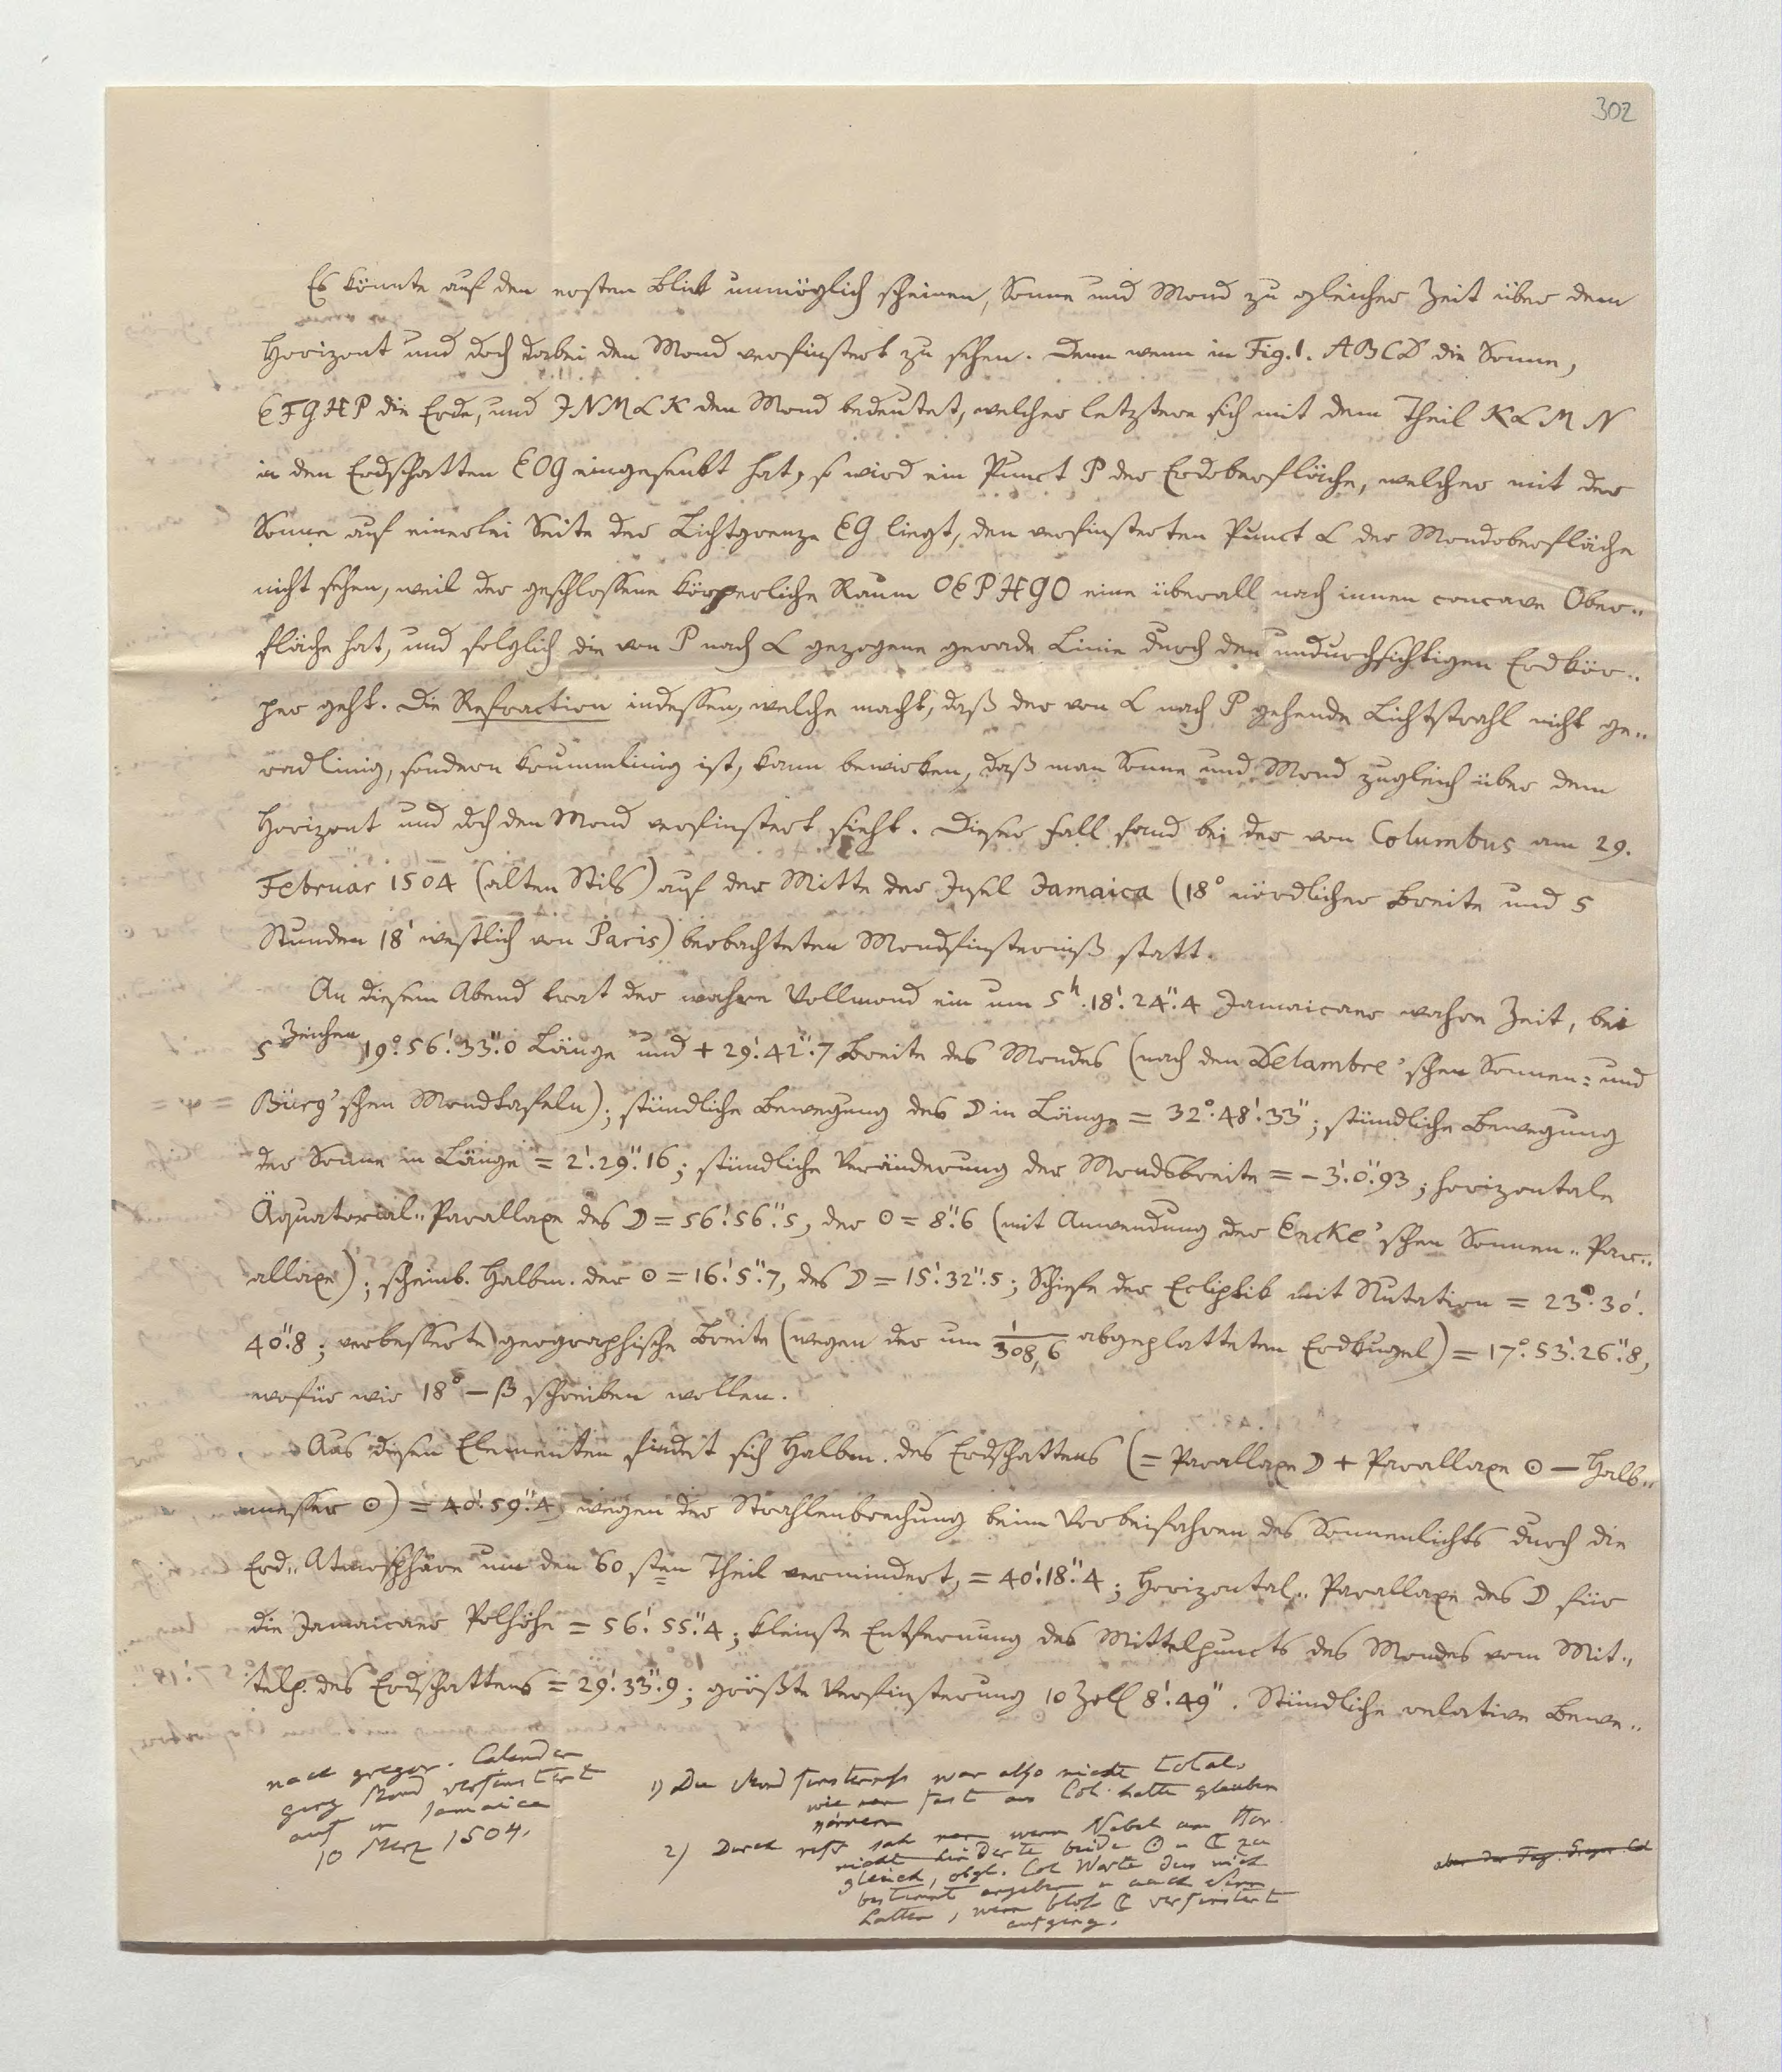 302
Es könnte auf den ersten Blick unmöglich scheinen, Sonne und Mond zu gleicher Zeit über dem
Horizont und doch dabei den Mond verfinstert zu sehen. Denn wenn in Fig. 1. ABCD die Sonne,
EFGHP die Erde, und INMLK den Mond bedeutet, welcher letztere sich mit dem Theil KLMN
in den Erdschatten EOG eingesenkt hat, so wird ein Punct P der Erdoberfläche, welcher mit der
Sonne auf einerlei Seite der Lichtgrenze EG liegt, den verfinsterten Punct L der Mondoberfläche
nicht sehen, weil der geschlossene körperliche Raum OEPHGO eine überall nach innen concave Ober„
fläche hat, und folglich die von P nach L gezogene gerade Linie durch den undurchsichtigen Erdkör„
per geht. Die Refraction indessen, welche macht, daß der von L nach P gehende Lichtstrahl nicht ge„
radlinig, sondern krummlinig ist, kann bewirken, daß man Sonne und Mond zugleich über dem
Horizont und doch den Mond verfinstert sieht. Dieser Fall fand bei der von Columbus am 29.
Februar 1504 (alten Stils) auf der Mitte der Insel Jamaica (18° nördlicher Breite und 5
Stunden 18' westlich von Paris) beobachteten Mondfinsterniß statt.
An diesem Abend trat der wahre Vollmond ein um 5h. 18'. 24".4 Jamaicaer wahre Zeit, bei
5 Zeichen 19°. 56'. 33".0 Länge und + 29'. 42".7 Breite des Mondes (nach den Delambre'schen Sonnen= und
Bürg'schen Mondtafeln); stündliche Bewegung des ☽ in Länge = 32°. 48'. 33"; stündliche Bewegung
der Sonne in Länge = 2'. 29".16; stündliche Veränderung der Mondsbreite = − 3'. 0".93; horizontale
Äquatorial„Parallaxe des ☽ = 56'. 56".5, der ☉ = 8".6 (mit Anwendung der Encke'schen Sonnen„Par„
allaxe); scheinb. Halbm. der ☉ = 16'. 5".7, des ☽ = 15'. 32".5; Schiefe der Ecliptik mit Nutation = 23°. 30'.
40".8; verbesserte geographische Breite (wegen der um 1/308,6 abgeplatteten Erdkugel) = 17°. 53'. 26".8,
wofür wir 18° − β schreiben wollen.
Aus diesen Elementen findet sich Halbm. des Erdschattens (= Parallaxe ☽ + Parallaxe ☉ − Halb„
messer ☉) = 40'. 59".4, wegen der Strahlenbrechung beim Vorbeifahren des Sonnenlichts durch die
Erd„Atmosphäre um den 60sten Theil vermindert, = 40'. 18".4; Horizontal„Parallaxe des ☽ für
die Jamaicaer Polhöhe = 56'. 55".4; kleinste Entfernung des Mittelpuncts des Mondes vom Mit„
telp. des Erdschattens = 29'. 33".9; größte Verfinsterung 10 Zoll 8'. 49". Stündliche relative Bewe„
nach gregor. Calender
ging Mond verfinstert
auf in Jamaica
10 Merz 1504.
1) Die Mond finsterniß war also nicht total.
wie man fast aus Col. hatte glauben
können
2) Durch refr sah man wenn Nebel am Hor.
nicht hinderte beide ☉ u ☾ zu
gleich, obgl. Col Worte dies nicht
bestimmt angeben u auch Sinn
hatten, wenn blos ☾ verfinstert
aufging.
aber der Tag. Gregor. Cal